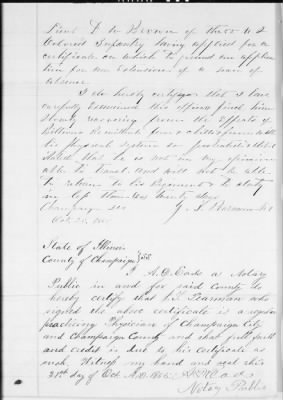 Lieut D W Brown of the U S
Colored Infantry having applied for a
certificate on which to found an applica
tion for an extension of leave of
absence
I do hereby certify that I have
carefully examined this officer find him
slowly recovering from the effects of
Billious Remittent fever
his physical system so prostrated
that he is not in my opinion
able to travel and will not be able
to return to his Regiment to duty
in less than twenty days
Champaign Ills
Oct 21
State of Illinois
County of Champaign } SS.
I A. D. Eads a Notary
Public in and for said County do
hereby certify that Pearman who
signed the above certificate is a regular
practicing Physician of Champaign City
and Champaign County and that full faith
and credit is due to his certificate as
such. Witness my hand and seal this
21st day of Oct A.D.
Notary Public